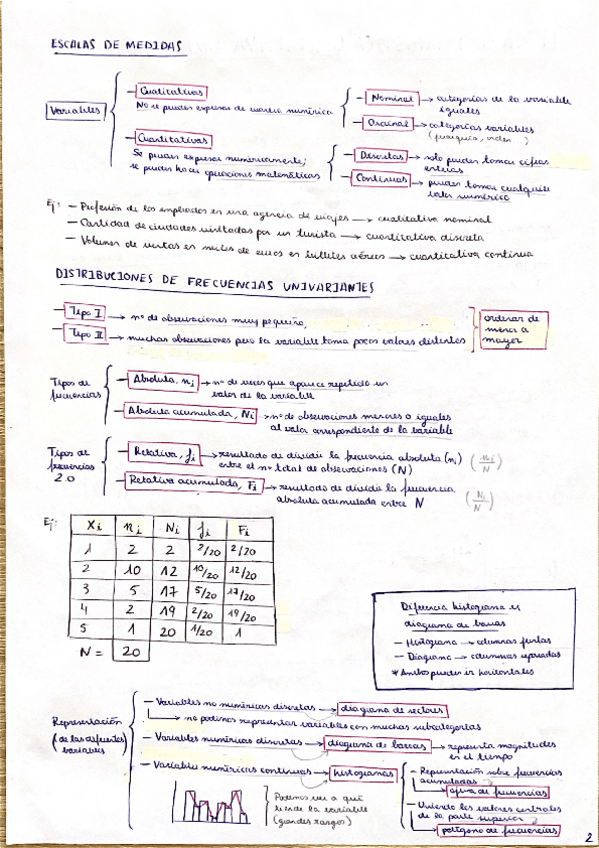 ESCALAS DE MEDIDAS
Variables
– Cualitativas
No se pueden expresar de manera numérica
– Nominal → categorías de la variable
iguales
– Ordinal → categorías variables
(jerarquía, orden )
– Cuantitativas
Se pueden expresar numéricamente;
se pueden hacer operaciones matemáticas
– Discretas → solo pueden tomar cifras
enteras
– Continuas → pueden tomar cualquier
valor numérico
Ej: – Profesión de los empleados en una agencia de viajes → cualitativa nominal
– Cantidad de ciudades visitadas por un turista → cuantitativa discreta
– Volumen de ventas en miles de euros en billetes aéreos → cuantitativa continua
DISTRIBUCIONES DE FRECUENCIAS UNIVARIANTES
– Tipo I → nº de observaciones muy pequeño,
– Tipo II → muchas observaciones pero la variable toma pocos valores distintos
ordenar de
menor a
mayor
Tipos de
frecuencias
– Absoluta, ni → nº de veces que aparece repetido un
valor de la variable
– Absoluta acumulada, Ni → nº de observaciones menores o iguales
al valor correspondiente de la variable
Tipos de
frecuencias
2.0
– Relativa, fi → resultado de dividir la frecuencia absoluta (ni) (ni/N)
entre el nº total de observaciones (N)
– Relativa acumulada, Fi → resultado de dividir la frecuencia (Ni/N)
absoluta acumulada entre N
Ej:
Xi ni Ni fi Fi
1 2 2 2/20 2/20
2 10 12 10/20 12/20
3 5 17 5/20 17/20
4 2 19 2/20 19/20
5 1 20 1/20 1
N = 20
Diferencia histograma vs
diagrama de barras
– Histograma → columnas juntas
– Diagrama → columnas separadas
* Ambos pueden ir horizontales
Representación
(de las diferentes
variables)
– Variables no numéricas discretas → diagrama de sectores
→ no podemos representar variables con muchas subcategorías
– Variables numéricas discretas → diagrama de barras → representa magnitudes
en el tiempo
– Variable numéricas continuas → histogramas
– Representación sobre frecuencias
acumuladas
→ ojiva de frecuencias
– Uniendo los valores centrales
de la parte superior
→ polígono de frecuencias
Podemos ver a qué
tiende la variable
(grandes rasgos)
2